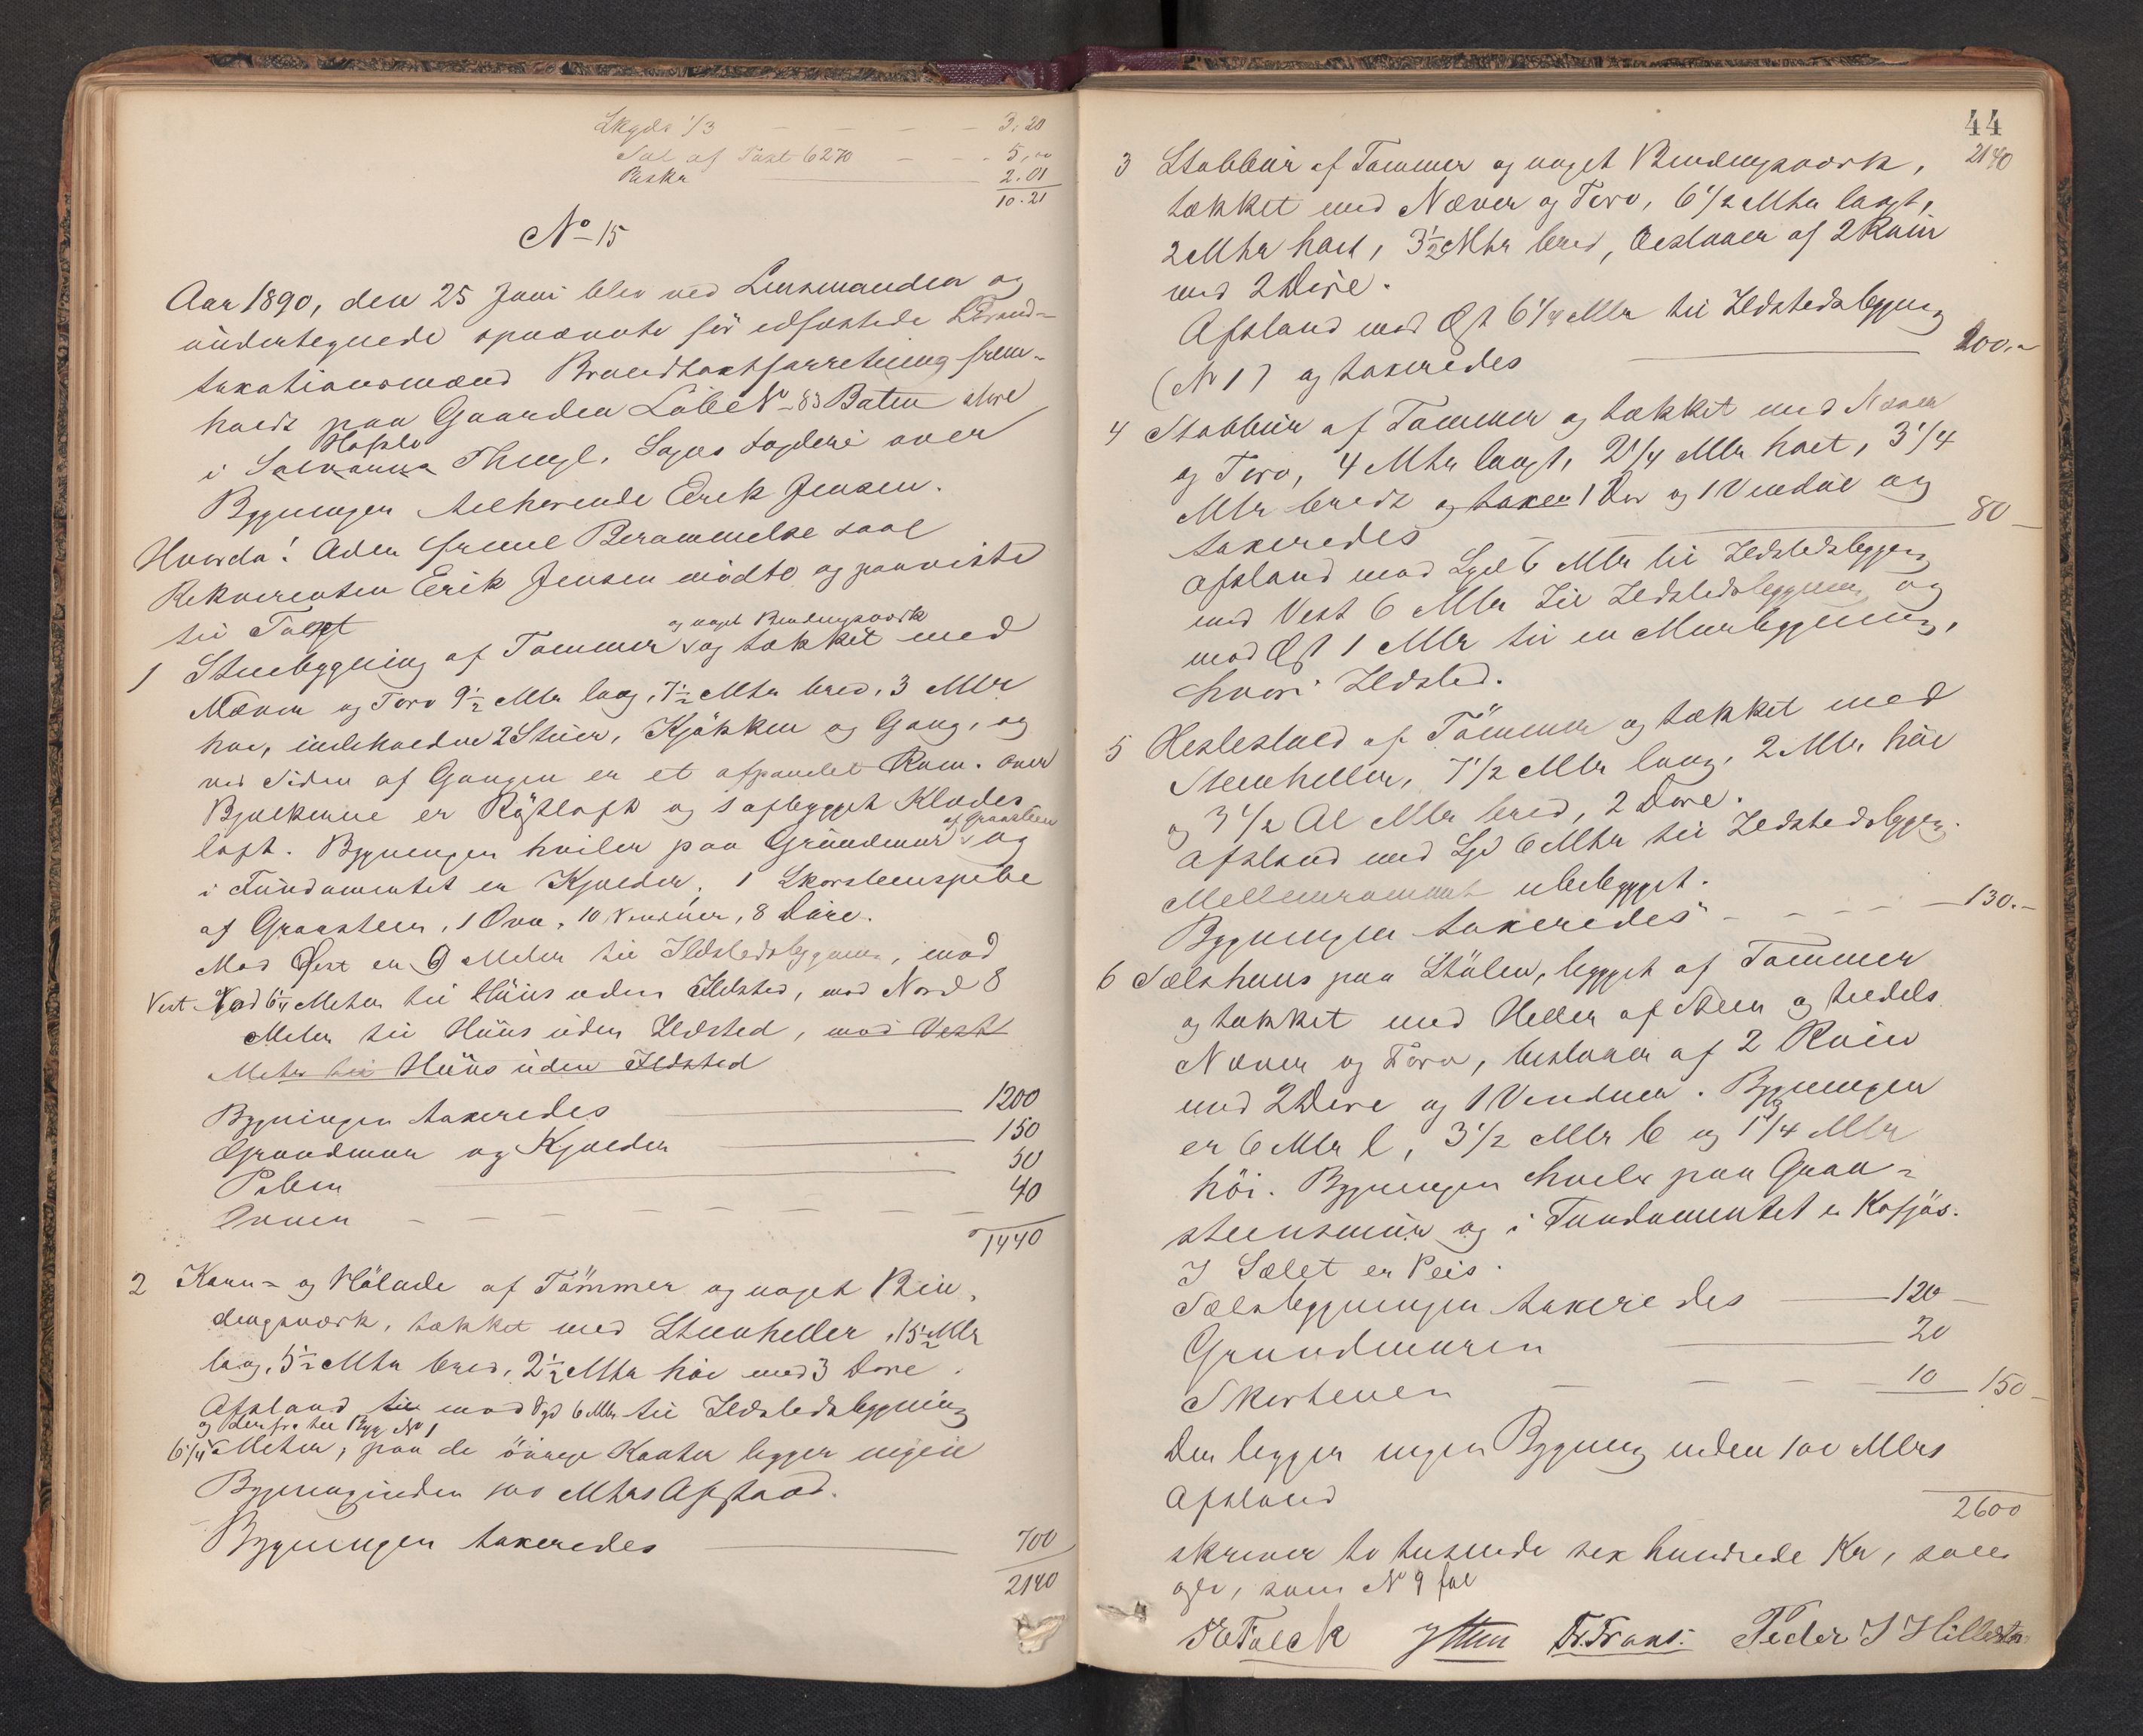 Skyds 1/3 — — — — 3.20
Sal af Taxt 6270 — — - 5,00
Diska 2.01
10.21
No 15
Aar 1890, den 25 Juni blev ved Lensmanden og
undertegnede opnævnte for edfæstede Brand-
taxationsmænd Brandtaxtforretning frem-
holdt paa Gaarden Løbe No 83 Båten store
i Solvorns Thingl. Sogns Fogderi over
Hafslo
Bygningen tilhørende Erik Jensen.
Hvorda! Uden formel Berammelse saal
Rekvirenten Erik Jensen mødte og paaviste
til Taxt
og noget Bindingsværk
1 Stuebygning af Tømmer og tækket med
Næver og Torv 9½ Mtr lang, 7½ Mtr bred, 3 Mtr
høi, indeholder 2 Stuer, Kjøkken og Gang, og
ved Siden af Gangen er et afpanelet Rum. Over
Bjelkerne er Röstloft og 1 afbygget Klædes
loft. Bygningen hviler paa Grundmur og
af Graasten
i Fundamentet er Kjælder, 1 Skorstenspibe
af Graasten, 1 Ovn, 10 Vinduer, 8 Döre.
Mod Øst er 9 Meter til Ildstedsbygning, mod
Vest 6¼ Meter til Huus uden Ildsted, mod Nord 8
Meter til Huus uden Ildsted, mod Vest
Meter til Huus uden Ildsted
Bygningen taxeredes 1200
Grundmur og Kjælder 150
Piben 50
Ovnen — — — — — — — 40
1440
2 Korn- og Hölade af Tömmer og noget Bin-
dingsværk, tækket med Steenheller, 15½ Mtr
lang, 5½ Mtr bred, 2½ Mtr høi med 3 Døre.
Afstand til mod Syd 6 Mtr til Ildstedsbygning
og derfra til Byg No 1
6¼ Meter, paa de övrige Kanter ligger ingen
Bygning inden 100 Mtrs Afstand.
Bygningen taxeredes 700
2140
44
2140
3 Stabbur af Tømmer og noget Bindingsværk,
tækket med Næver og Torv, 6½ Mtr langt,
2 Mtr høit, 3½ Mtr bred, bestaaer af 2 Rum
med 2 Døre.
Afstand mod Øst 6¼ Mtr til Ildstedsbygning
(No 1) og taxeredes 200.-
4 Stabbur af Tømmer og tækket med Næver
og Torv, 4 Mtr langt, 2¼ Mtr høit, 3¼
Mtr bredt og taxer 1 Dør og 1 Vindue og
taxeredes 80
Afstand mod Syd 6 Mtr til Ildstedsbygning
mod Vest 6 Mtr til Ildstedsbygning og
mod Øst 1 Mtr til en Murbygning,
hvori Ildsted.
5 Hestestald af Tömmer og tækket med
Steenheller, 7½ Mtr lang, 2 Mtr høi
og 3½ Al Mtr bred, 2 Døre.
Afstand mod Syd 6 Mtr til Ildstedsbygn.
Mellemrummet ubebygget.
Bygningen taxeredes — — — — 130.-
6 Sælshuus paa Stölen, bygget af Tømmer
og tækket med Heller af Steen og tildels
Næver og Torv, bestaaer af 2 Rum
med 2 Døre og 1 Vinduer. Bygningen
er 6 Mtr l, 3½ Mtr b og 1¾ Mtr
höi. Bygningen hviler paa Graa-
steensmur og i Fundamentet er Kofjøs.
I Sælet er Peis.
Sælsbygningen taxeredes 120
Grundmuren 20
Skorstenen — — — 10 150
Der ligger ingen Bygning inden 100 Mtrs
Afstand
2600
skriver to tusinde sex hundrede Kr,
som No 9 fol
Falck Fr. Frans. Peder J Hillestad